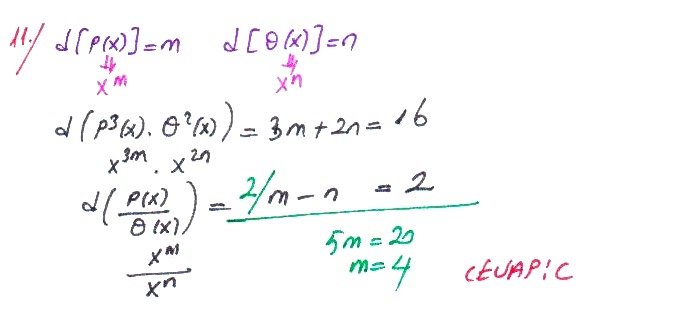 11./ d[P(x)]=m d[Q(x)]=n
⇓ ⇓
x^m x^n
d(P³(x). Q²(x)) = 3m+2n= 16
x^3m . x^2n
d(P(x)/Q(x)) = 2/m-n = 2
5m=20
x^m/x^n m=4 CEVAP:C